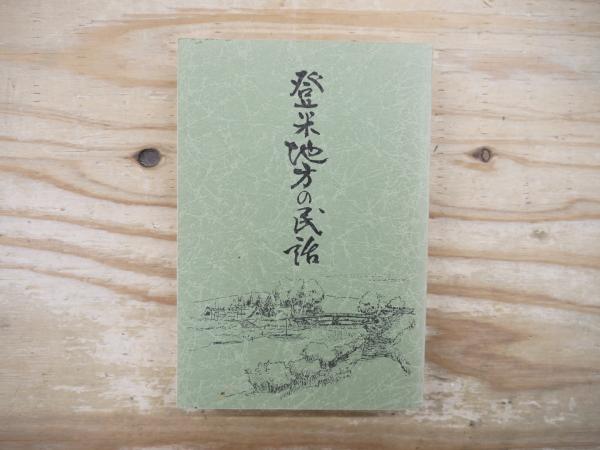 登米地方の民話